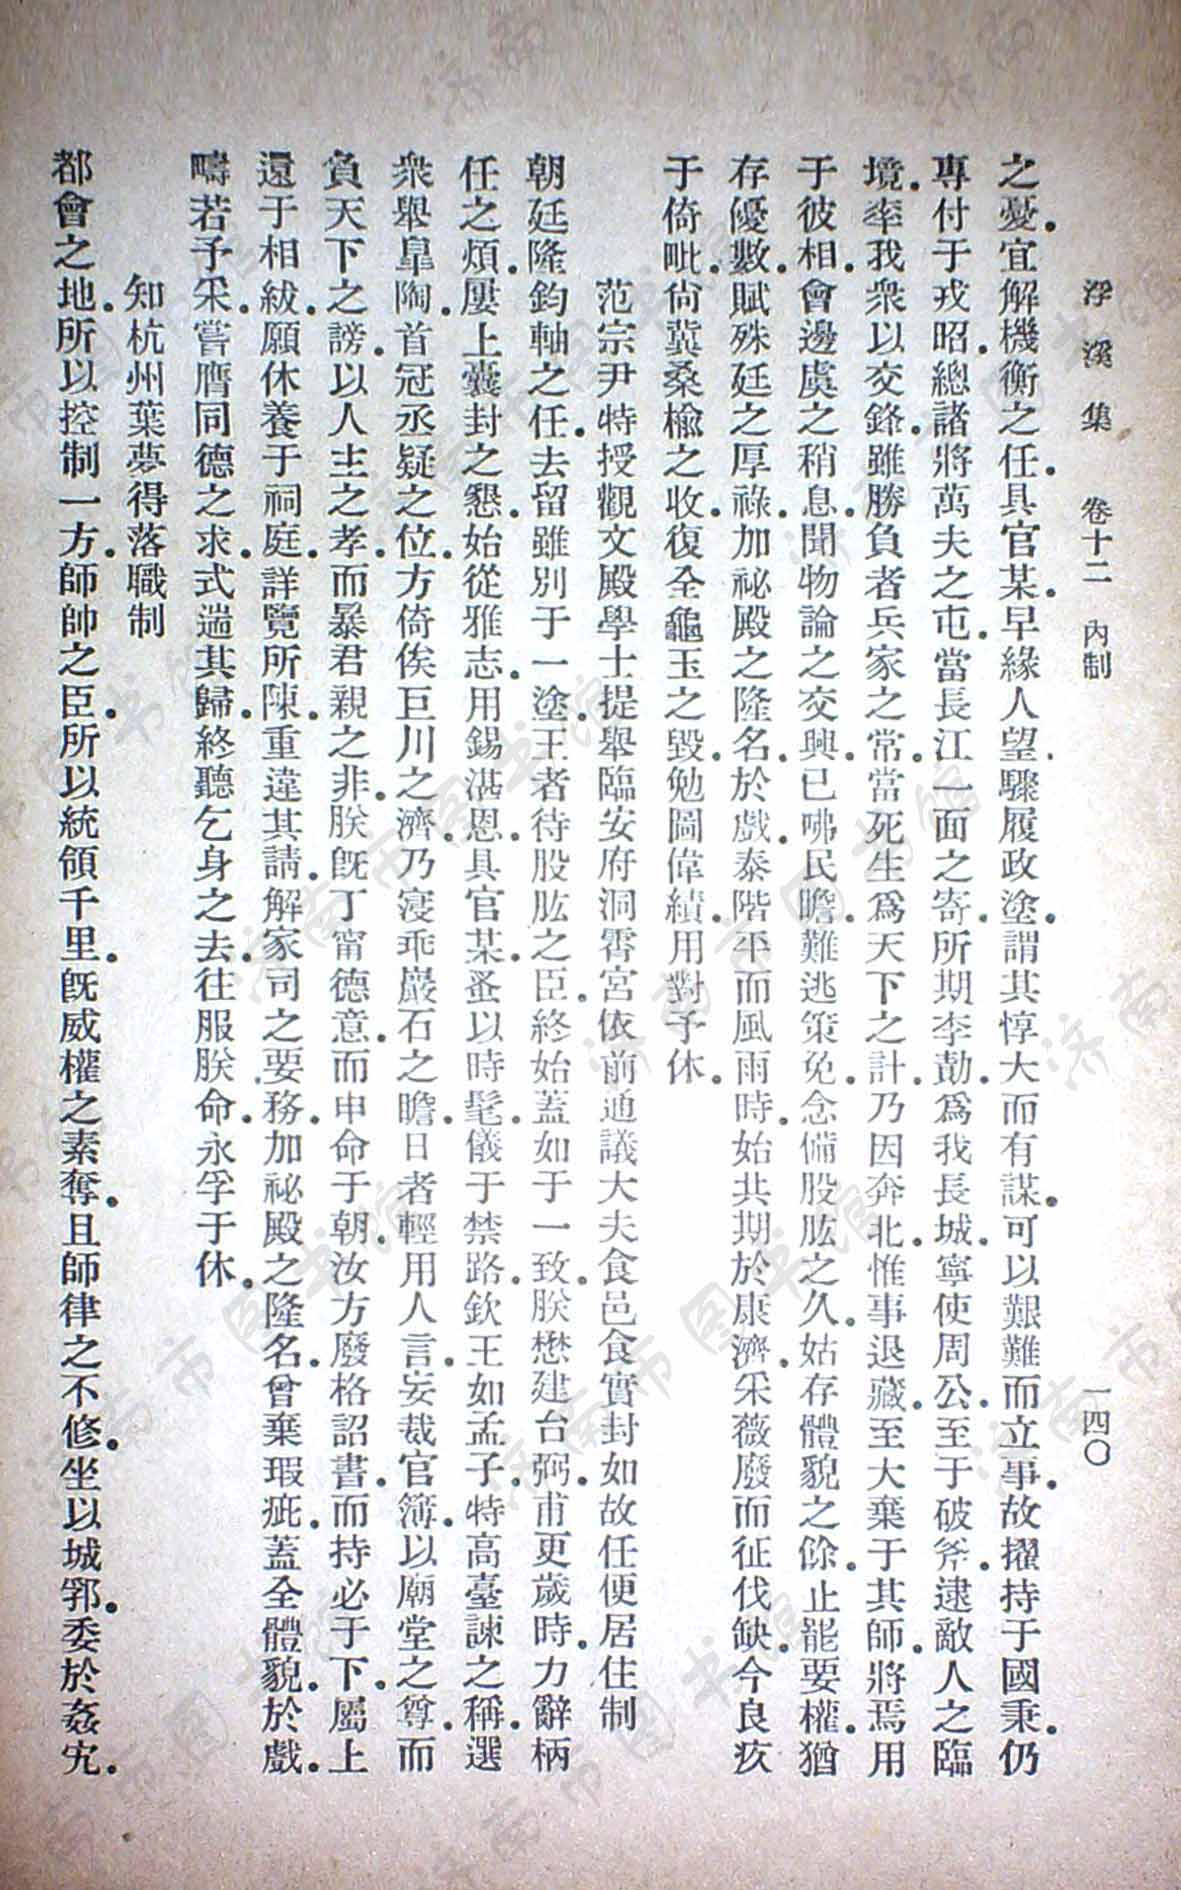 浮溪集　卷十二　內制　一四〇
之憂。宜解機衡之任。具官某。早緣人望。驟履政塗。謂其惇大而有謀。可以艱難而立事。故擢持于國秉。仍
專付于戎昭。總諸將萬夫之屯。當長江一面之寄。所期李勣。爲我長城。寧使周公。至于破斧。逮敵人之臨
境。率我衆以交鋒。雖勝負者兵家之常。當死生爲天下之計。乃因奔北。惟事退藏。至大棄于其師。將焉用
于彼相。會邊虞之稍息。聞物論之交興。已咈民瞻。難逃策免。念備股肱之久。姑存體貌之餘。止罷要權。猶
存優數。賦殊廷之厚祿。加祕殿之隆名。於戲。泰階平而風雨時。始共期於康濟。采薇廢而征伐缺。今良疚
于倚毗。尙冀桑楡之收。復全龜玉之毀。勉圖偉績。用對予休。
范宗尹特授觀文殿學士提舉臨安府洞霄宮依前通議大夫食邑食實封如故任便居住制
朝廷隆鈞軸之任。去留雖別于一塗。王者待股肱之臣。終始蓋如于一致。朕懋建台弼。甫更歲時。力辭柄
任之煩。屢上囊封之懇。始從雅志。用錫湛恩。具官某。蚤以時髦。儀于禁路。欽王如孟子。特高臺諫之稱。選
衆舉臯陶。首冠丞疑之位。方倚俟巨川之濟。乃寖乖巖石之瞻。日者輕用人言。妄裁官簿。以廟堂之尊。而
負天下之謗。以人主之孝。而暴君親之非。朕旣丁甯德意。而申命于朝。汝方廢格詔書。而持必于下。屬上
還于相紱。願休養于祠庭。詳覽所陳。重違其請。解家司之要務。加祕殿之隆名。曾棄瑕疵。蓋全體貌。於戲。
疇若予采。嘗膺同德之求。式遄其歸。終聽乞身之去。往服朕命。永孚于休。
知杭州葉夢得落職制
都會之地。所以控制一方。師帥之臣。所以統領千里。旣威權之素奪。且師律之不修。坐以城郛。委於姦宄。